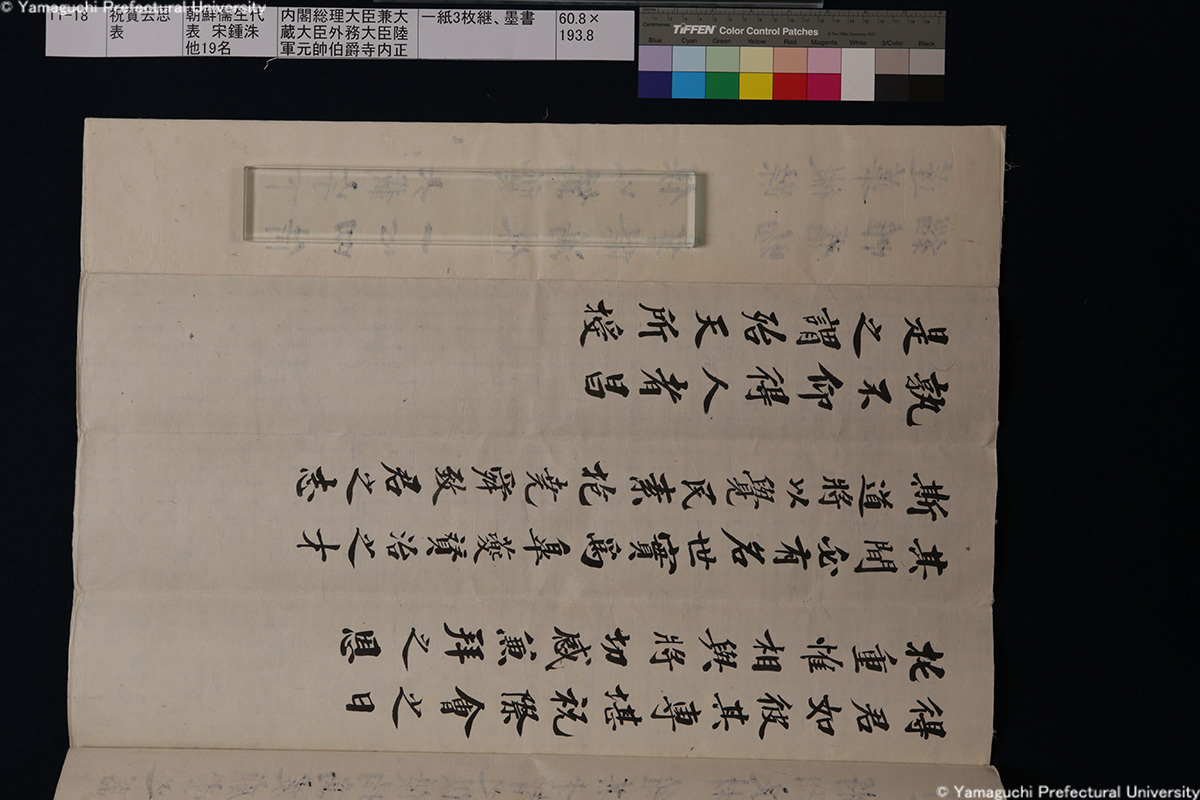 © Yamaguchi Prefectural University
11-18
祝賀云志
表
朝鮮儒生代
表 宋鍾洙
他19名
内閣総理大臣兼大
蔵大臣外務大臣陸
軍元帥伯爵寺内正
一紙3枚継、墨書
60.8×
193.8
Centimetres
TIFFEN Color Control Patches
Blue Cyan Green Yellow Red Magenta White 3/Color Black
得君如彼其專堪祝際會之日
托重惟相與將切感兼拜之恩
其間必有名世實爲皐夔贊治之才
斯道將以覺民素抱堯舜致君之志
孰不仰得人者昌
是之謂殆天所授
© Yamaguchi Prefectural University